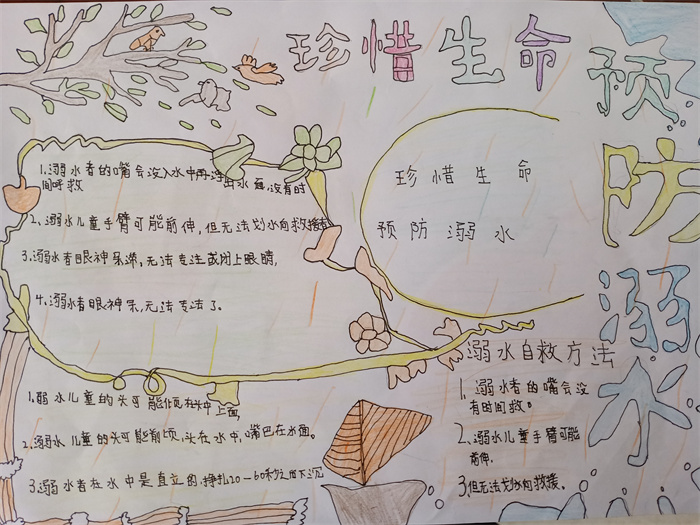 珍惜生命
预防溺水
1.溺水者的嘴会没入水中再浮出水面,没有时
间呼救
2、溺水儿童手臂可能前伸,但无法划水向救援者
3.溺水者眼神呆滞,无法专注或闭上眼睛,
4.溺水者眼神呆,无法专法了。
珍惜生命
预防溺水
1.弱水儿童的头可能 在水中
上面,
2.溺水儿童的头可能前倾,头在水中,嘴巴在水面。
3溺水者在水中是直立的.挣扎20-60秒之 下沉
溺水自救方法
1.溺水者的嘴会没
有时间救。
2.溺水儿童手臂可能
前伸.
3.但无法划水向救援。